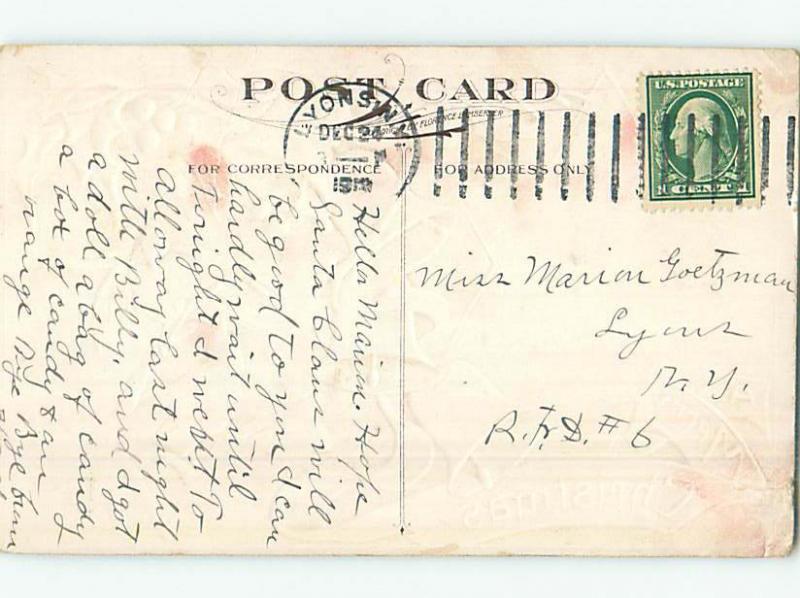 POST CARD
LYONS, N.
DEC 24
U.S. POSTAGE
1 CENT 1
FOR CORRESPONDENCE
FOR ADDRESS ONLY
Hello Marion. Hope
Santa Claus will
be good to you I can
hardly wait until
Tonight I went to
alloway last night
with Billy, and I got
a doll a bag of candy
a box of candy & an
orange Bye Bye from
Miss Marion Goetzman
Lyons
N.Y.
R.F.D. #6
Christmas